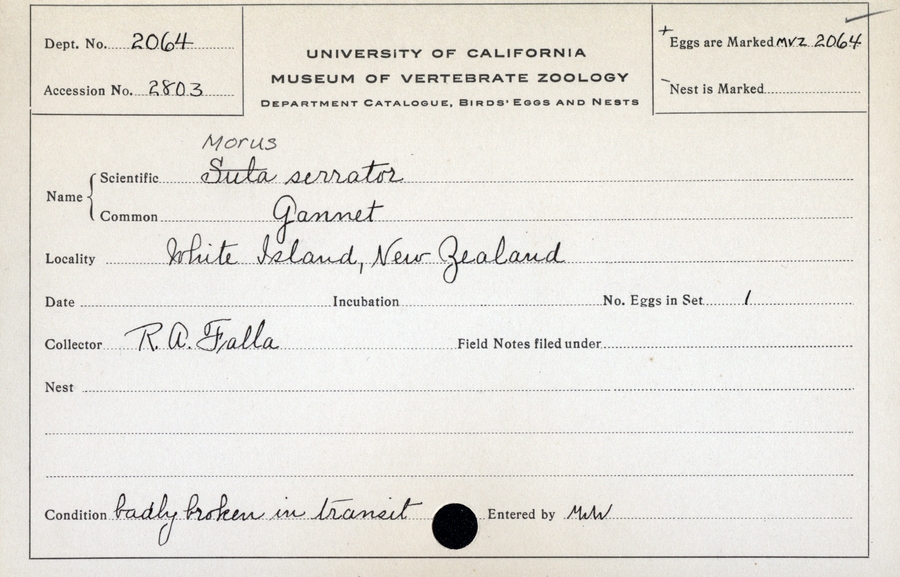 Dept. No. 2064
Accession No. 2803
UNIVERSITY OF CALIFORNIA
MUSEUM OF VERTEBRATE ZOOLOGY
DEPARTMENT CATALOGUE, BIRDS' EGGS AND NESTS
+ Eggs are Marked MVZ 2064
Nest is Marked
Morus
Name Scientific Sula serrator
Common Gannet
Locality White Island, New Zealand
Date Incubation No. Eggs in Set 1
Collector R. A. Falla Field Notes filed under
Nest
Condition badly broken in transit Entered by